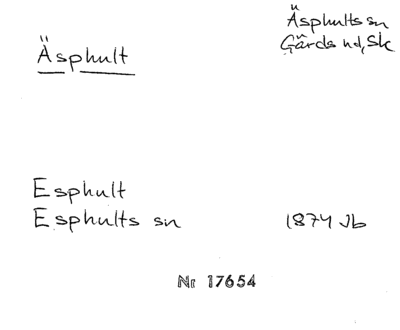 Äsphult
Äsphults sn
Gärds hd, Sk
Esphult
Esphults sn
1874 Jb
Nr 17654